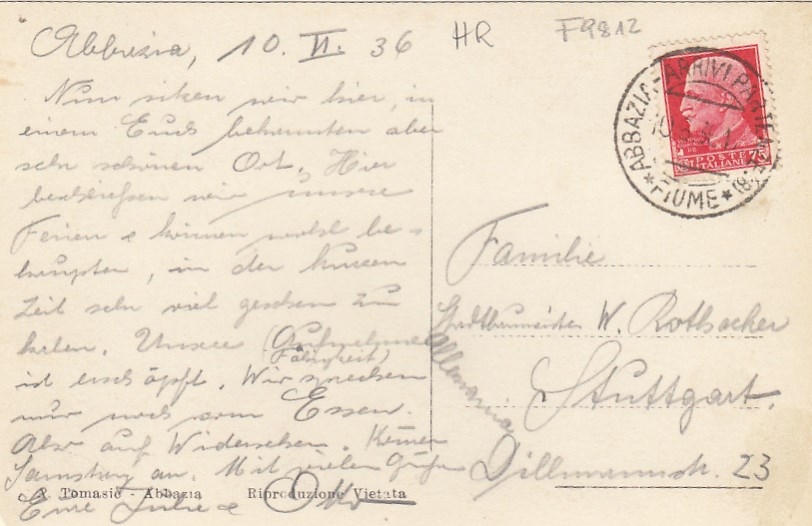 Abbazia, 10. VI. 36
HR
F9812
Nun sitzen wir hier, in
einem Euch bekannten aber
sehr schönen Ort. Hier
beschliessen wir unsere
Ferien & können wohl be-
haupten, in der kurzen
Zeit sehr viel gesehen zu
haben. Unsere (Aufnahme
Fähigkeit)
ist erschöpft. Wir sprechen
nur noch vom Essen.
Also auf Wiedersehen. Kommen
Samstag an. Mit vielen Grüßen
Eure Julie & Otto
A. Tomasić - Abbazia Riproduzione Vietata
ABBAZIA - ARRIVI
★ FIUME ★
POSTE
ITALIANE
75
Familie
Stadtbaumeister W. Rothacker
Stuttgart.
Allemania
Dillmannstr. 23